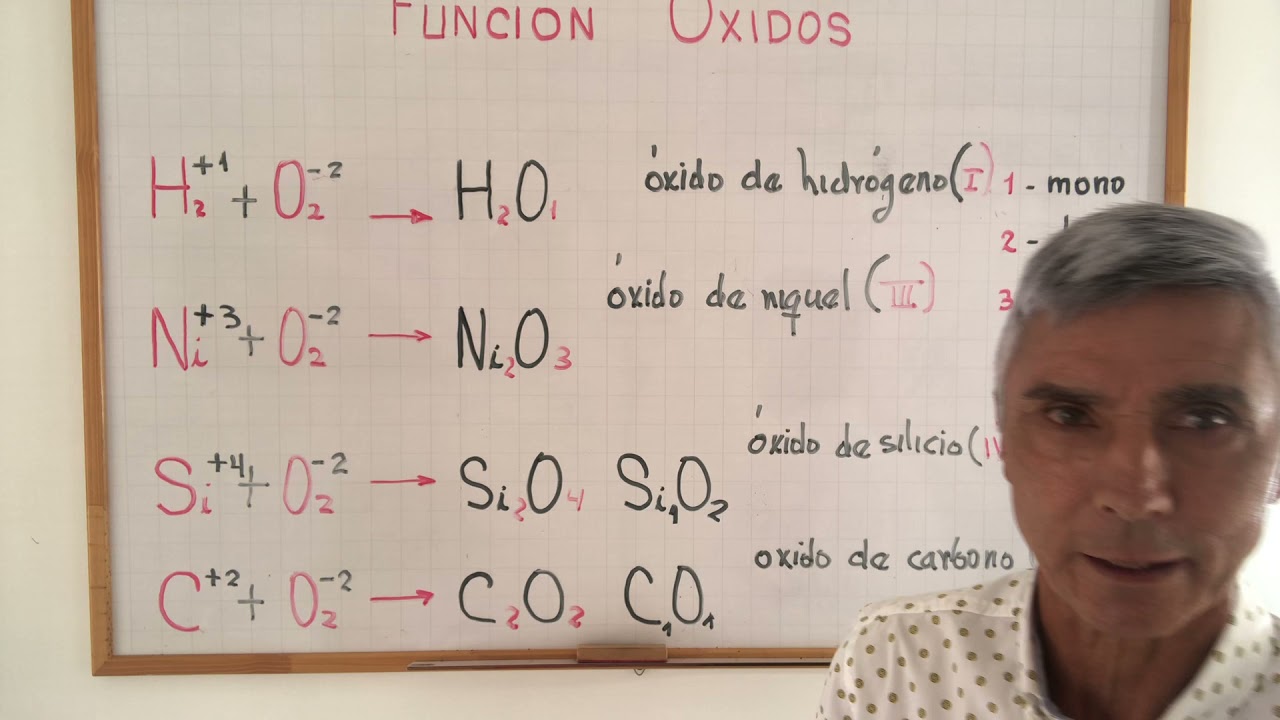 FUNCION OXIDOS
H₂⁺¹ + O₂⁻² → H₂O₁ óxido de hidrógeno (I) 1 - mono
2 -
Ni⁺³ + O₂⁻² → Ni₂O₃ óxido de niquel (III) 3
Si⁺⁴ + O₂⁻² → Si₂O₄ Si₁O₂ óxido de silicio (IV
C⁺² + O₂⁻² → C₂O₂ C₁O₁ oxido de carbono